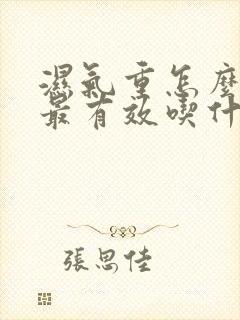 濕氣重怎麼
最有效喫什
張思佳